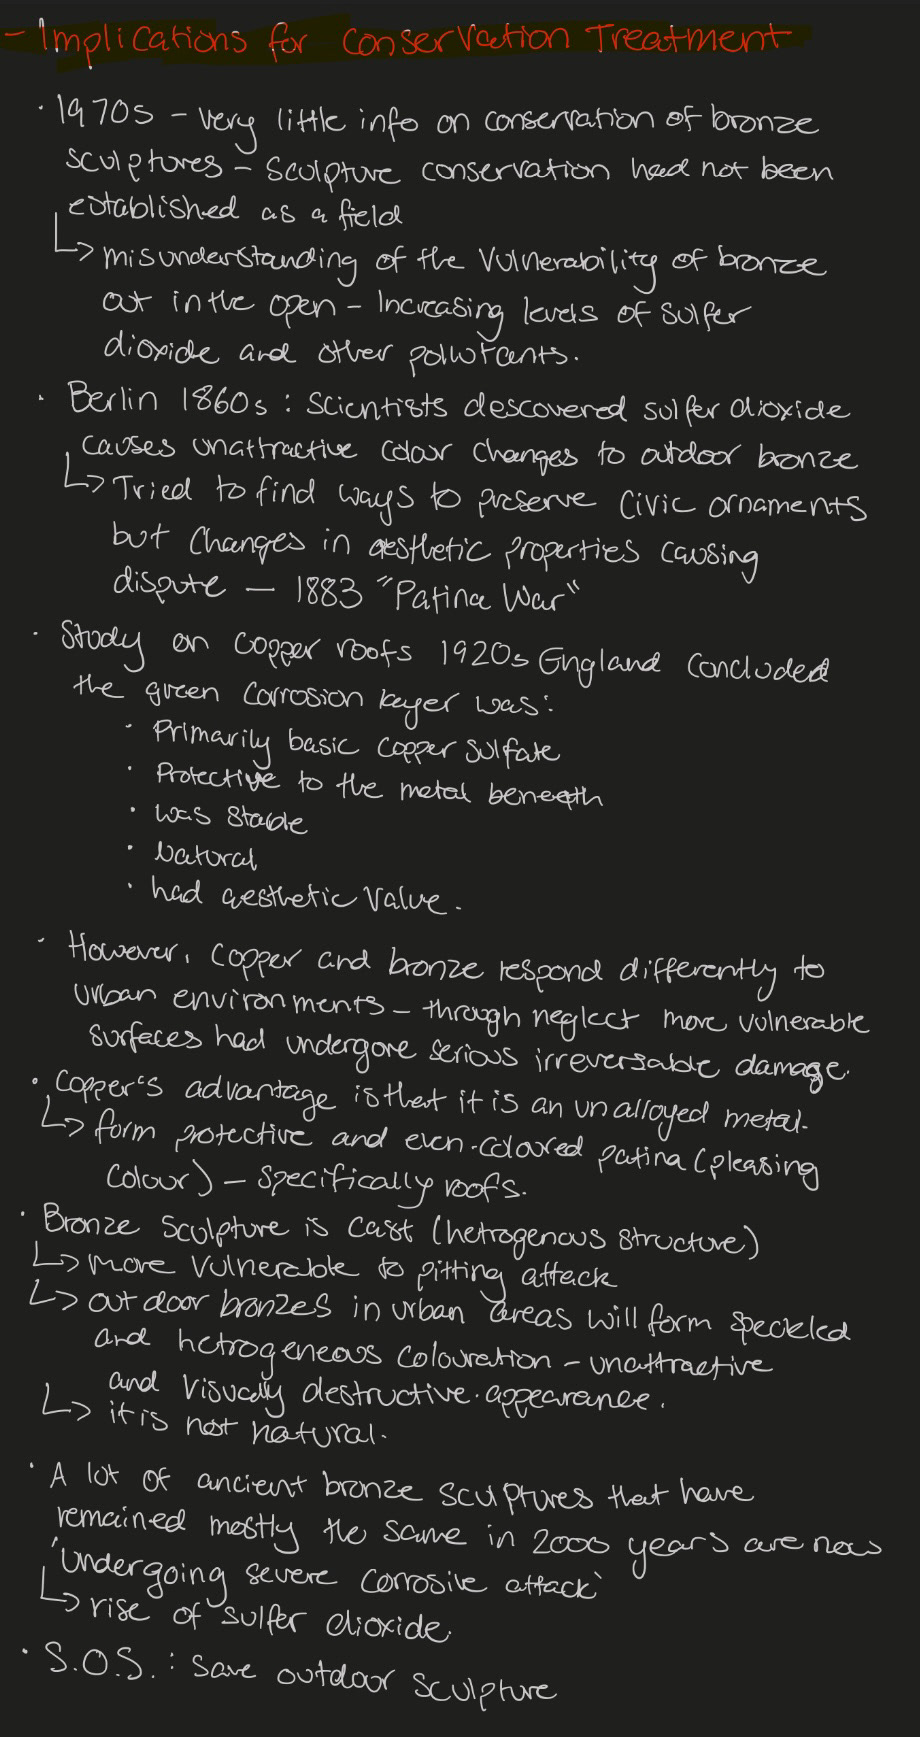 - Implications for Conservation Treatment
· 1970s - very little info on conservation of bronze
sculptures - sculpture conservation had not been
established as a field
↳ misunderstanding of the vulnerability of bronze
out in the open - Increasing levels of sulfer
dioxide and other pollutants.
· Berlin 1860s : Scientists descovered sulfer dioxide
causes unattractive colour changes to outdoor bronze
↳ Tried to find ways to preserve civic ornaments
but changes in aesthetic properties causing
dispute — 1883 "Patina War"
· Study on copper roofs 1920s England concluded
the green corrosion layer was:
· Primarily basic copper sulfate
· Protective to the metal beneath
· was stable
· Natural
· had aesthetic value.
· However, copper and bronze respond differently to
urban environments - through neglect more vulnerable
surfaces had undergone serious irreversable damage.
· Copper's advantage is that it is an unalloyed metal.
↳ form protective and even-coloured patina (pleasing
colour) - specifically roofs.
· Bronze Sculpture is cast (hetrogenous structure)
↳ more vulnerable to pitting attack
↳ outdoor bronzes in urban areas will form speckled
and hetrogeneous colouration - unattractive
and visually destructive appearance.
↳ it is not natural.
· A lot of ancient bronze sculptures that have
remained mostly the same in 2000 years are now
'undergoing severe corrosive attack'
↳ rise of sulfer dioxide.
· S.O.S. : Save outdoor sculpture